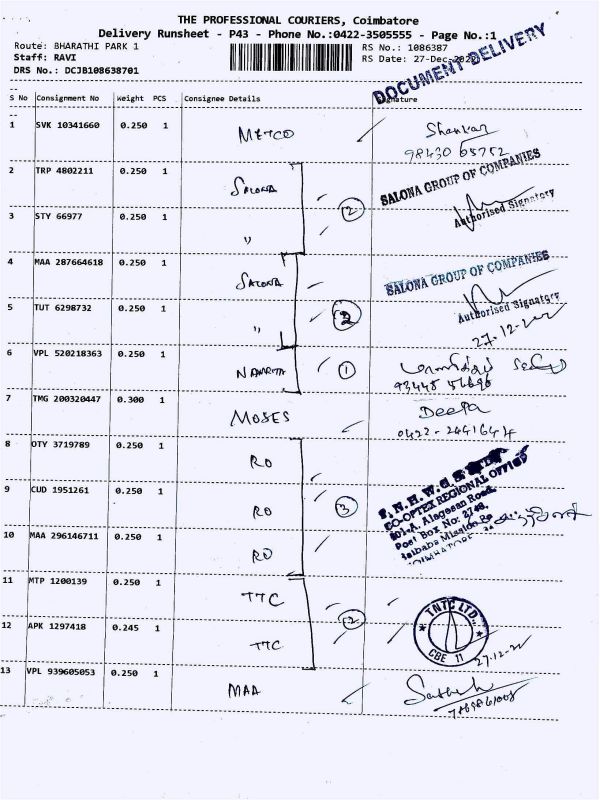 THE PROFESSIONAL COURIERS, Coimbatore
Delivery Runsheet - P43 - Phone No.:0422-3505555 - Page No.:1
Route: BHARATHI PARK 1 RS No.: 1086387
Staff: RAVI RS Date: 27-Dec-2022
DRS No.: DCJB108638701
DOCUMENT DELIVERY
S No Consignment No Weight PCS Consignee Details Signature
1 SVK 10341660 0.250 1 METCO Shankar
98430 65752
2 TRP 4802211 0.250 1 SALONA SALONA GROUP OF COMPANIES
Authorised Signatory
3 STY 66977 0.250 1 " 2
4 MAA 287664618 0.250 1 SALONA SALONA GROUP OF COMPANIES
Authorised Signatory
5 TUT 6298732 0.250 1 " 2 27-12-22
6 VPL 520218363 0.250 1 1
7 TMG 200320447 0.300 1 MOSES Deepa
0422-2441644
8 OTY 3719789 0.250 1 RO
CO-OPTEX REGIONAL OFFICE
9 CUD 1951261 0.250 1 RO 3
Post Box No: 2748,
10 MAA 296146711 0.250 1 RO
11 MTP 1200139 0.250 1 TTC
TNTC LTD.,
CBE 11
12 APK 1297418 0.245 1 TTC 2 27-12-22
13 VPL 939605053 0.250 1 MAA